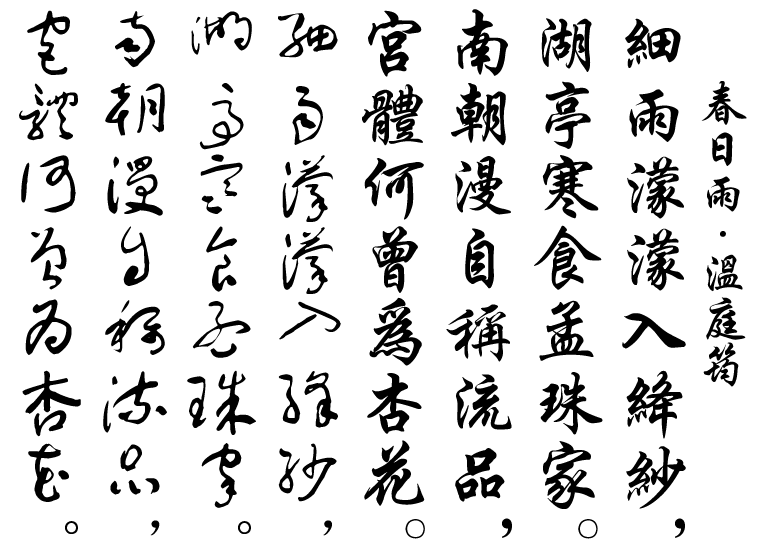 春日雨・溫庭筠
細雨濛濛入絳紗，
湖亭寒食孟珠家。
南朝漫自稱流品，
宮體何曾爲杏花。
細雨濛濛入絳紗，
湖亭寒食孟珠家。
南朝漫自稱流品，
宮體何曾爲杏花。